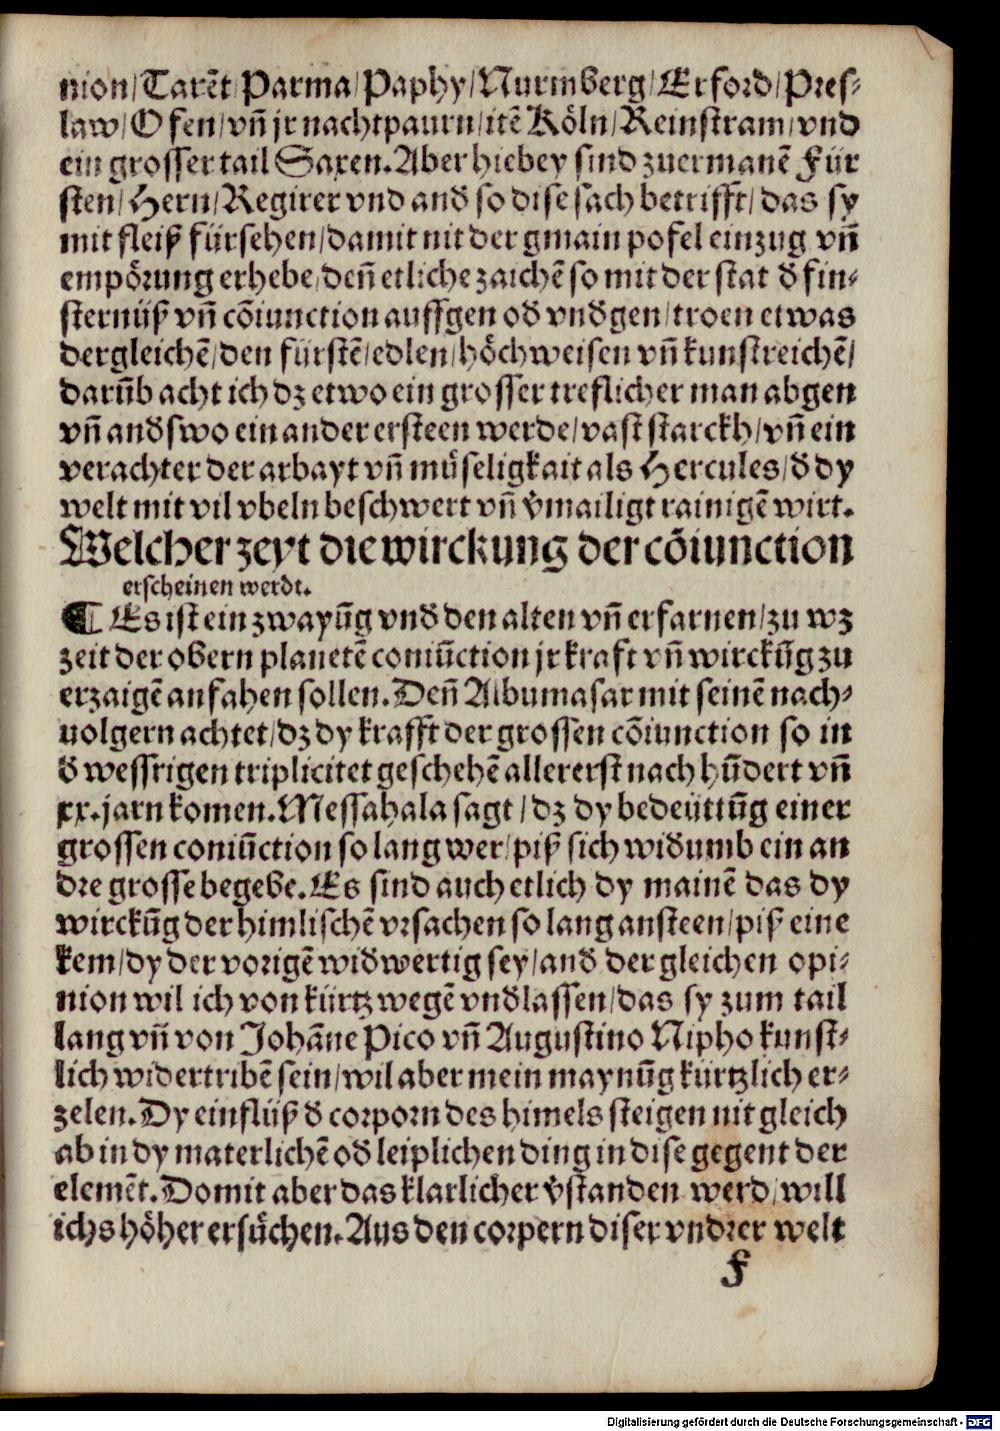 nion/Tarēt/Parma/Paphy/Nurmberg/Erford/Pres⸗
law/Ofen/vn̄ jr nachtpaurn/itē Köln/Reinstram/vnd
ein grosser tail Saxen.Aber hiebey sind zuermanē Für
sten/Hern/Regirer vnd and̄ so dise sach betrifft/das sy
mit fleiß fürsehen/damit nit der gmain pofel einzug vn̄
empörung erhebe/den̄ etliche zaichē so mit der stat d̄ fin⸗
sternüß vn̄ cōiunction auffgen od̄ vnd̄gen/troen etwas
dergleichē/den fürstē/edlen/höchweisen vn̄ kunstreichē/
darūb acht ich dz etwo ein grosser treflicher man abgen
vn̄ and̄swo ein ander ersteen werde/vast starckh/vn̄ ein
verachter der arbayt vn̄ müseligkait als Hercules/d̄ dy
welt mit vil vbeln beschwert vn̄ v̄mailigt rainigē wirt.
Welcher zeyt die wirckung der cōiunction
erscheinen werdt.
¶ Es ist ein zwayūg vnd̄ den alten vn̄ erfarnen/zu wz
zeit der obern planetē coniūction jr kraft vn̄ wirckūg zu
erzaigē anfahen sollen.Den̄ Albumasar mit seinē nach⸗
uolgern achtet/dz dy krafft der grossen cōiunction so in
d̄ wessrigen triplicitet geschehē allererst nach hūdert vn̄
xx.jarn komen.Messahala sagt/dz dy bedeüttūg einer
grossen coniūction so lang wer/piß sich wid̄umb ein an
dre grosse begebe.Es sind auch etlich dy mainē das dy
wirckūg der himlischē vrsachen so lang ansteen/piß eine
kem/dy der vorigē wid̄wertig sey/and̄ der gleichen opi⸗
nion wil ich von kürtz wegē vnd̄lassen/das sy zum tail
lang vn̄ von Johāne Pico vn̄ Augustino Nipho kunst⸗
lich widertribē sein/wil aber mein maynūg kürtzlich er⸗
zelen.Dy einflüß d̄ corporn des himels steigen nit gleich
ab in dy materlichē od̄ leiplichen ding in dise gegent der
elemēt.Domit aber das klarlicher v̄standen werd/will
ichs höher ersüchen.Aus den corpern diser vndrer welt
f
Digitalisierung gefördert durch die Deutsche Forschungsgemeinschaft - DFG